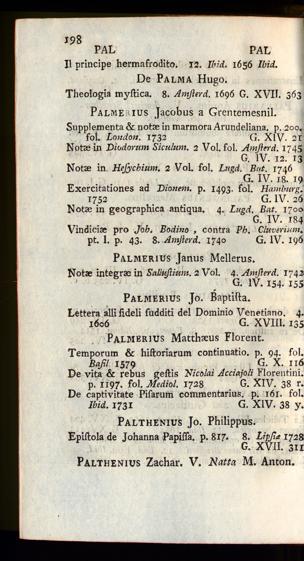 198
PAL PAL
Il principe hermafrodito. 12. Ibid. 1656 Ibid.
De PALMA Hugo.
Theologia myſtica. 8. Amſterd. 1696 G. XVII. 363
PALMERIUS Jacobus a Grentemesnil.
Supplementa & notæ in marmora Arundeliana, p. 200,
fol. London. 1732 G. XIV. 21
Notæ in Diodorum Siculum. 2 Vol. fol. Amſterd. 1745
G. IV. 12. 13
Notæ in Heſychium. 2 Vol. fol. Lugd. Bat. 1746
G. IV. 18. 19
Exercitationes ad Dionem. p. 1493. fol. Hamburg.
1752 G. IV. 26
Notæ in geographica antiqua. 4. Lugd. Bat. 1700
G. IV. 184
Vindiciæ pro Joh. Bodino, contra Ph. Cluverium.
pt. I. p. 43. 8. Amſterd. 1740 G. IV. 196
PALMERIUS Janus Mellerus.
Notæ integræ in Salluſtium. 2 Vol. 4. Amſterd. 1742
G. IV. 154. 155
PALMERIUS Jo. Baptiſta.
Lettera alli fideli ſudditi del Dominio Venetiano. 4.
1606 G. XVIII. 135
PALMERIUS Matthæus Florent.
Temporum & hiſtoriarum continuatio. p. 94. fol.
Baſil. 1579 G. X. 116
De vita & rebus geſtis Nicolai Acciajoli Florentini.
p. 1197. fol. Mediol. 1728 G. XIV. 38 r.
De captivitate Piſarum commentarius. p. 161. fol.
Ibid. 1731 G. XIV. 38 y.
PALTHENIUS Jo. Philippus.
Epiſtola de Johanna Papiſſa. p. 817. 8. Lipſiæ 1728
G. XVII. 311
PALTHENIUS Zachar. V. Natta M. Anton.